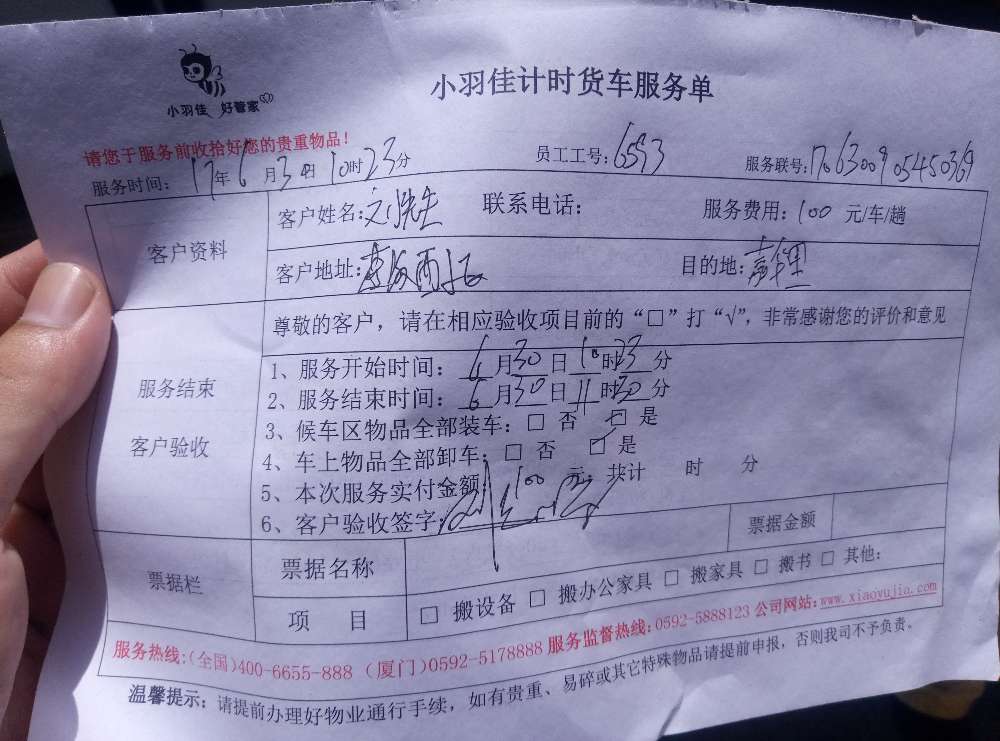 小羽佳 好管家
小羽佳计时货车服务单
请您于服务前收拾好您的贵重物品!
服务时间: 17年6月30日10时23分 员工工号:6593 服务联号:
客户资料
客户姓名: 先生 联系电话: 服务费用:100 元/车/趟
客户地址: 目的地:
服务结束
客户验收
尊敬的客户，请在相应验收项目前的“□”打“√”，非常感谢您的评价和意见
1、服务开始时间: 6月30日10时23分
2、服务结束时间: 6月30日11时30分
3、候车区物品全部装车: □ 否 □ 是
4、车上物品全部卸车: □ 否 □ 是
5、本次服务实付金额: 100 元; 共计 时 分
6、客户验收签字:
票据栏
票据名称 票据金额
项 目 □ 搬设备 □ 搬办公家具 □ 搬家具 □ 搬书 □ 其他:
服务热线:(全国)400-6655-888 (厦门)0592-5178888 服务监督热线:0592-5888123 公司网站:www.xiaoyujia.com
温馨提示: 请提前办理好物业通行手续，如有贵重、易碎或其它特殊物品请提前申报，否则我司不予负责。